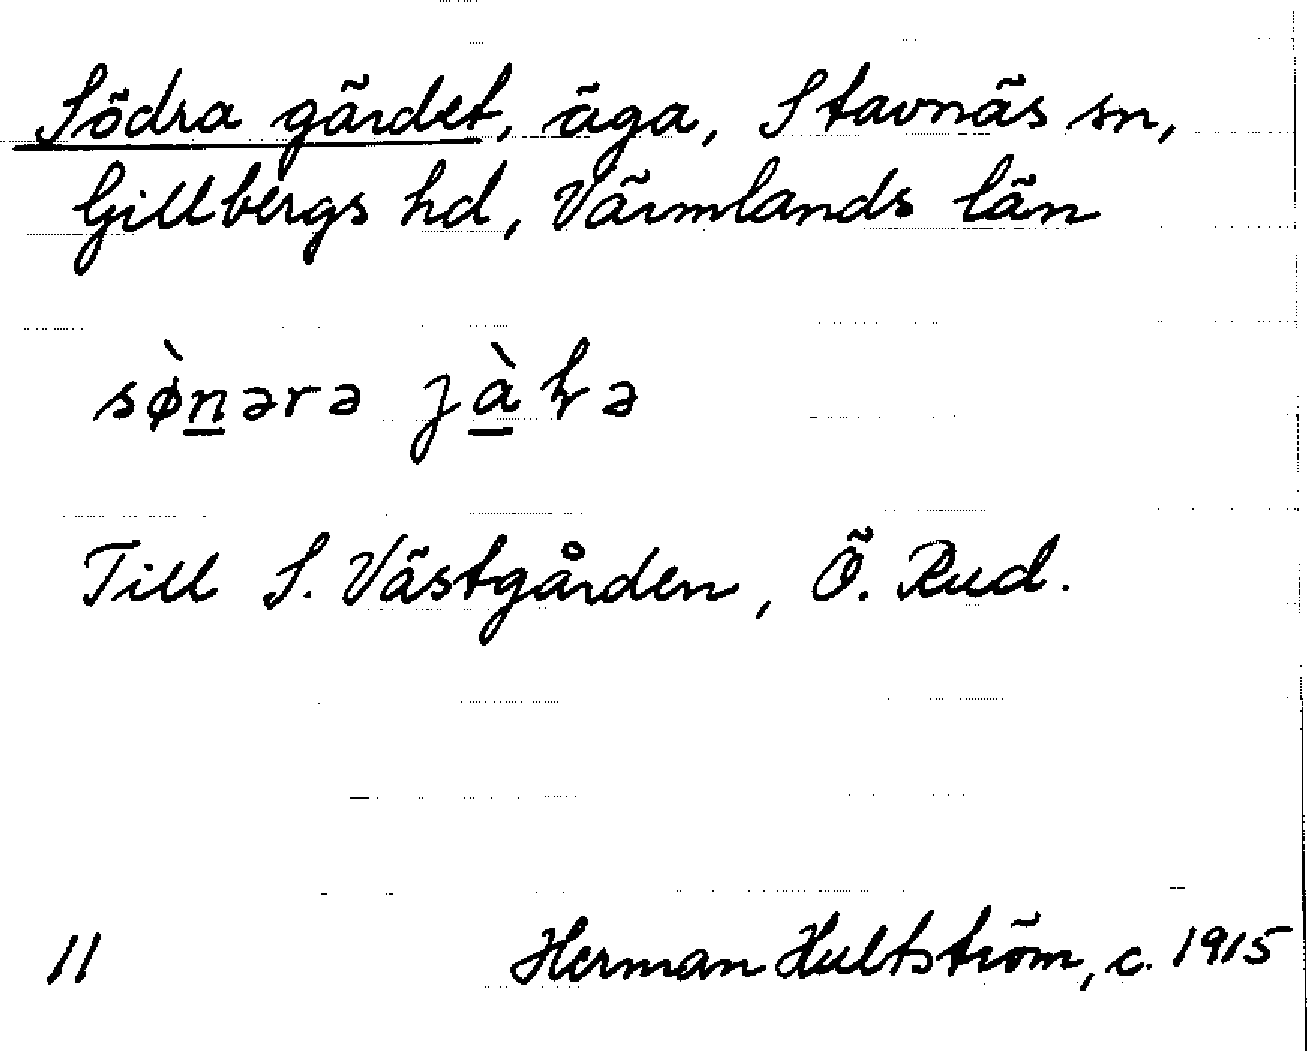 Södra gärdet, äga, Stavnäs sn,
Gillbergs hd, Värmlands län
sø̀n̲ərə jà̲ɽə
Till S. Västgården, Ö. Rud.
11 Herman Hultström, c. 1915